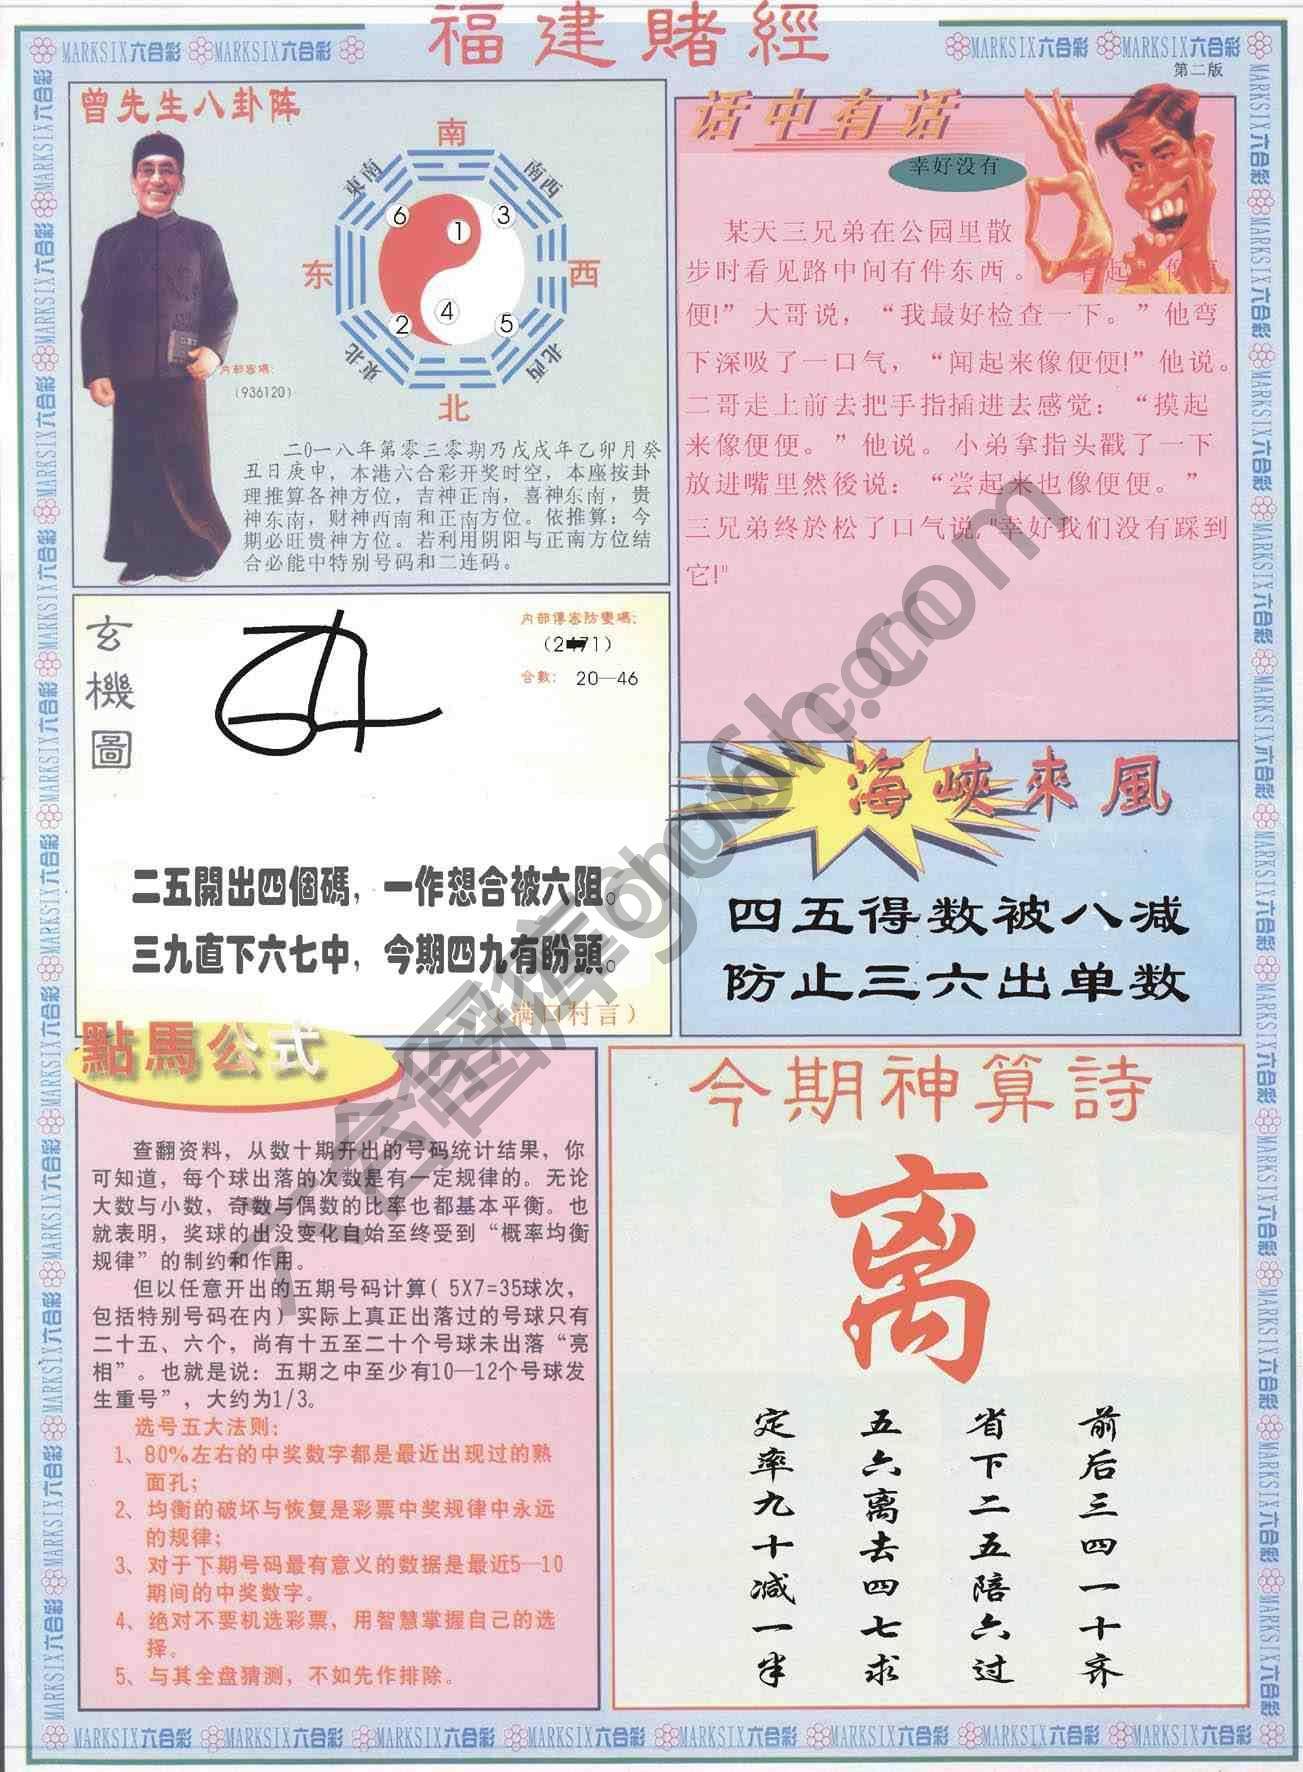 福建賭經
第二版
MARKSIX六合彩 MARKSIX六合彩
MARKSIX六合彩 MARKSIX六合彩
曾先生八卦阵
南
東南
南西
6
1
3
东
西
2
4
5
東北
北西
北
内部密碼：
(936120)
二0一八年第零三零期乃戊戌年乙卯月癸
丑日庚申，本港六合彩开奖时空，本座按卦
理推算各神方位，吉神正南，喜神东南，贵
神东南，财神西南和正南方位。依推算：今
期必旺贵神方位。若利用阴阳与正南方位结
合必能中特别号码和二连码。
话中有话
幸好没有
某天三兄弟在公园里散
步时看见路中间有件东西。
便!”大哥说，“我最好检查一下。”他弯
下深吸了一口气，“闻起来像便便!”他说。
二哥走上前去把手指插进去感觉：“摸起
来像便便。”他说。小弟拿指头戳了一下
放进嘴里然後说：“尝起来也像便便。”
三兄弟终於松了口气说,"幸好我们没有踩到
它!"
玄機圖
内部傳密防變碼：
合數： 20—46
二五開出四個碼，一作想合被六阻。
三九直下六七中，今期四九有盼頭。
（满口村言）
海峽來風
四五得数被八减
防止三六出单数
點馬公式
查翻资料，从数十期开出的号码统计结果，你
可知道，每个球出落的次数是有一定规律的。无论
大数与小数，奇数与偶数的比率也都基本平衡。也
就表明，奖球的出没变化自始至终受到“概率均衡
规律”的制约和作用。
但以任意开出的五期号码计算( 5X7=35球次，
包括特别号码在内）实际上真正出落过的号球只有
二十五、六个，尚有十五至二十个号球未出落“亮
相”。也就是说：五期之中至少有10—12个号球发
生重号”，大约为1/3。
选号五大法则：
1、80%左右的中奖数字都是最近出现过的熟
面孔；
2、均衡的破坏与恢复是彩票中奖规律中永远
的规律；
3、对于下期号码最有意义的数据是最近5—10
期间的中奖数字。
4、绝对不要机选彩票，用智慧掌握自己的选
择。
5、与其全盘猜测，不如先作排除。
今期神算詩
离
前后三四一十齐
省下二五陪六过
五六离去四七求
定率九十减一半
MARKSIX六合彩 MARKSIX六合彩 MARKSIX六合彩 MARKSIX六合彩 MARKSIX六合彩 MARKSIX六合彩 MARKSIX六合彩 MARKSIX六合彩